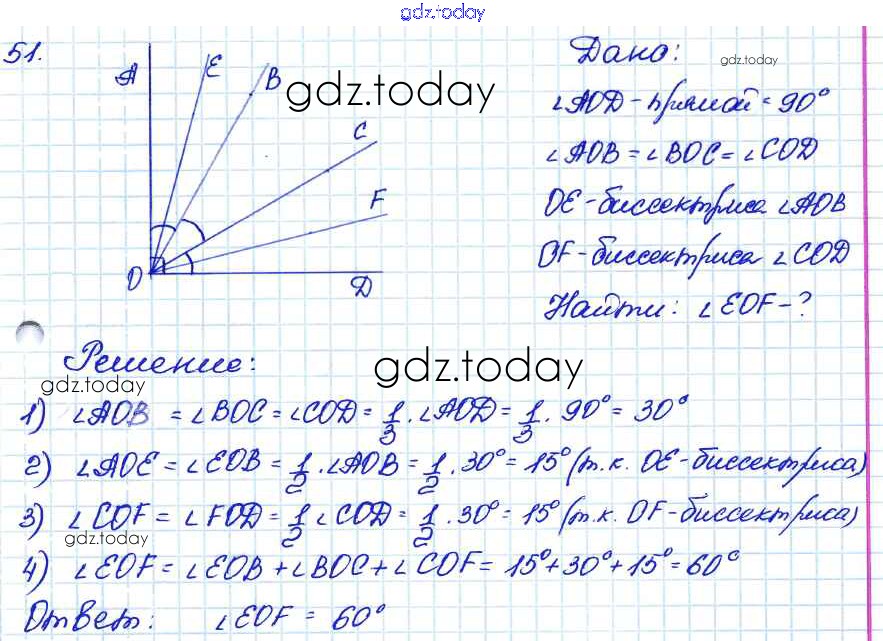 gdz.today
51.
A
E
B
C
F
O
D
gdz.today
Дано:
gdz.today
∠AOD - прямой = 90°
∠AOB = ∠BOC = ∠COD
OE - биссектриса ∠AOB
OF - биссектриса ∠COD
Найти: ∠EOF - ?
Решение:
gdz.today
gdz.today
1) ∠AOB = ∠BOC = ∠COD = 1/3 · ∠AOD = 1/3 · 90° = 30°
2) ∠AOE = ∠EOB = 1/2 · ∠AOB = 1/2 · 30° = 15° (т.к. OE - биссектриса)
3) ∠COF = ∠FOD = 1/2 ∠COD = 1/2 · 30° = 15° (т.к. OF - биссектриса)
gdz.today
4) ∠EOF = ∠EOB + ∠BOC + ∠COF = 15° + 30° + 15° = 60°
Ответ: ∠EOF = 60°